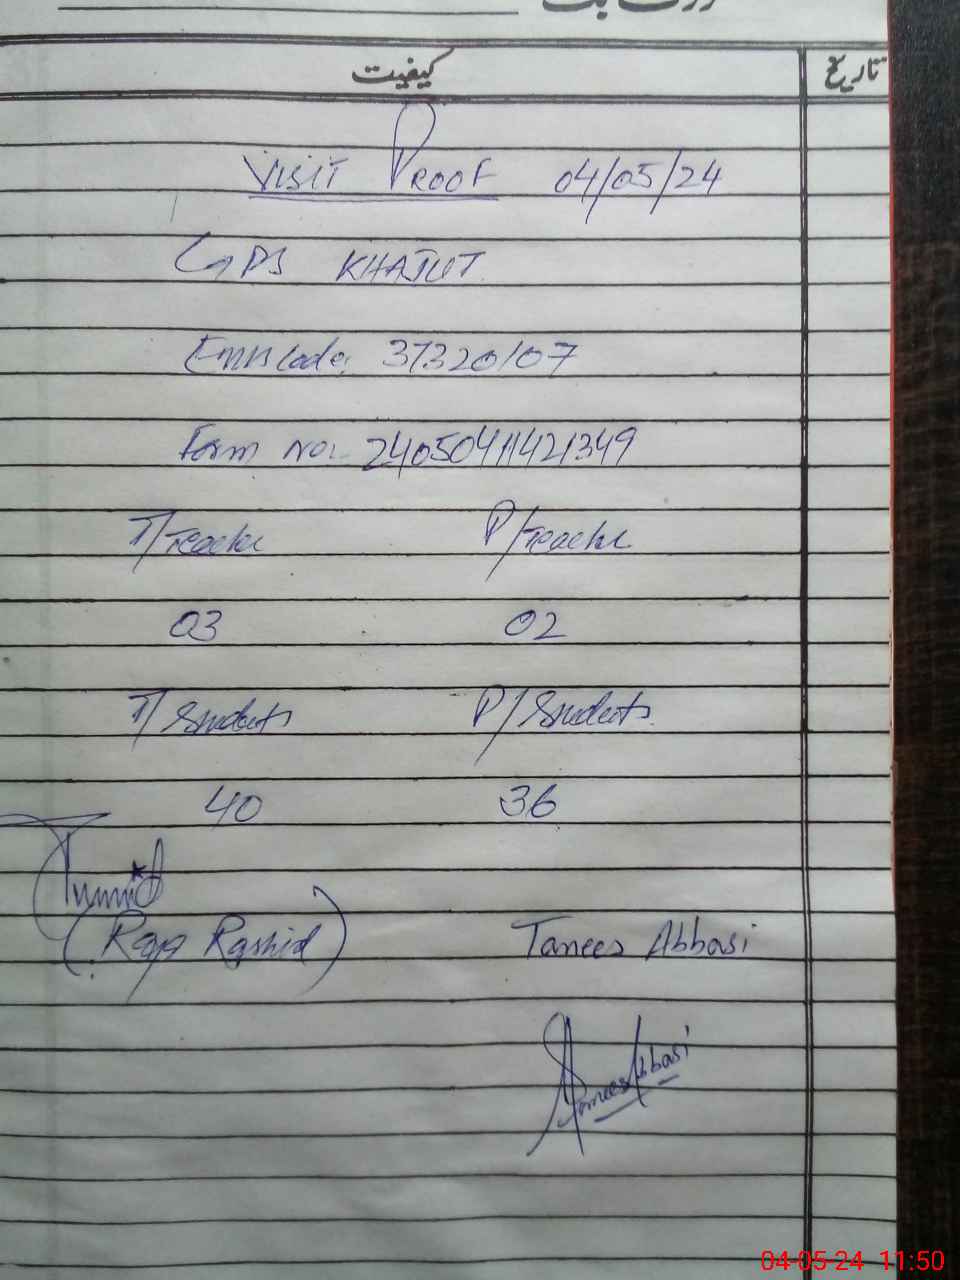 کیفیت تاریخ
VISIT PROOF 04/05/24
GPS KHATUT
EmisCode: 37320107
Form No:- 24050411421349
T/Teacher P/Teacher
03 02
T/Students P/Students
40 36
(Raja Rashid) Tanees Abbasi
Tanees Abbasi
04-05-24 11:50